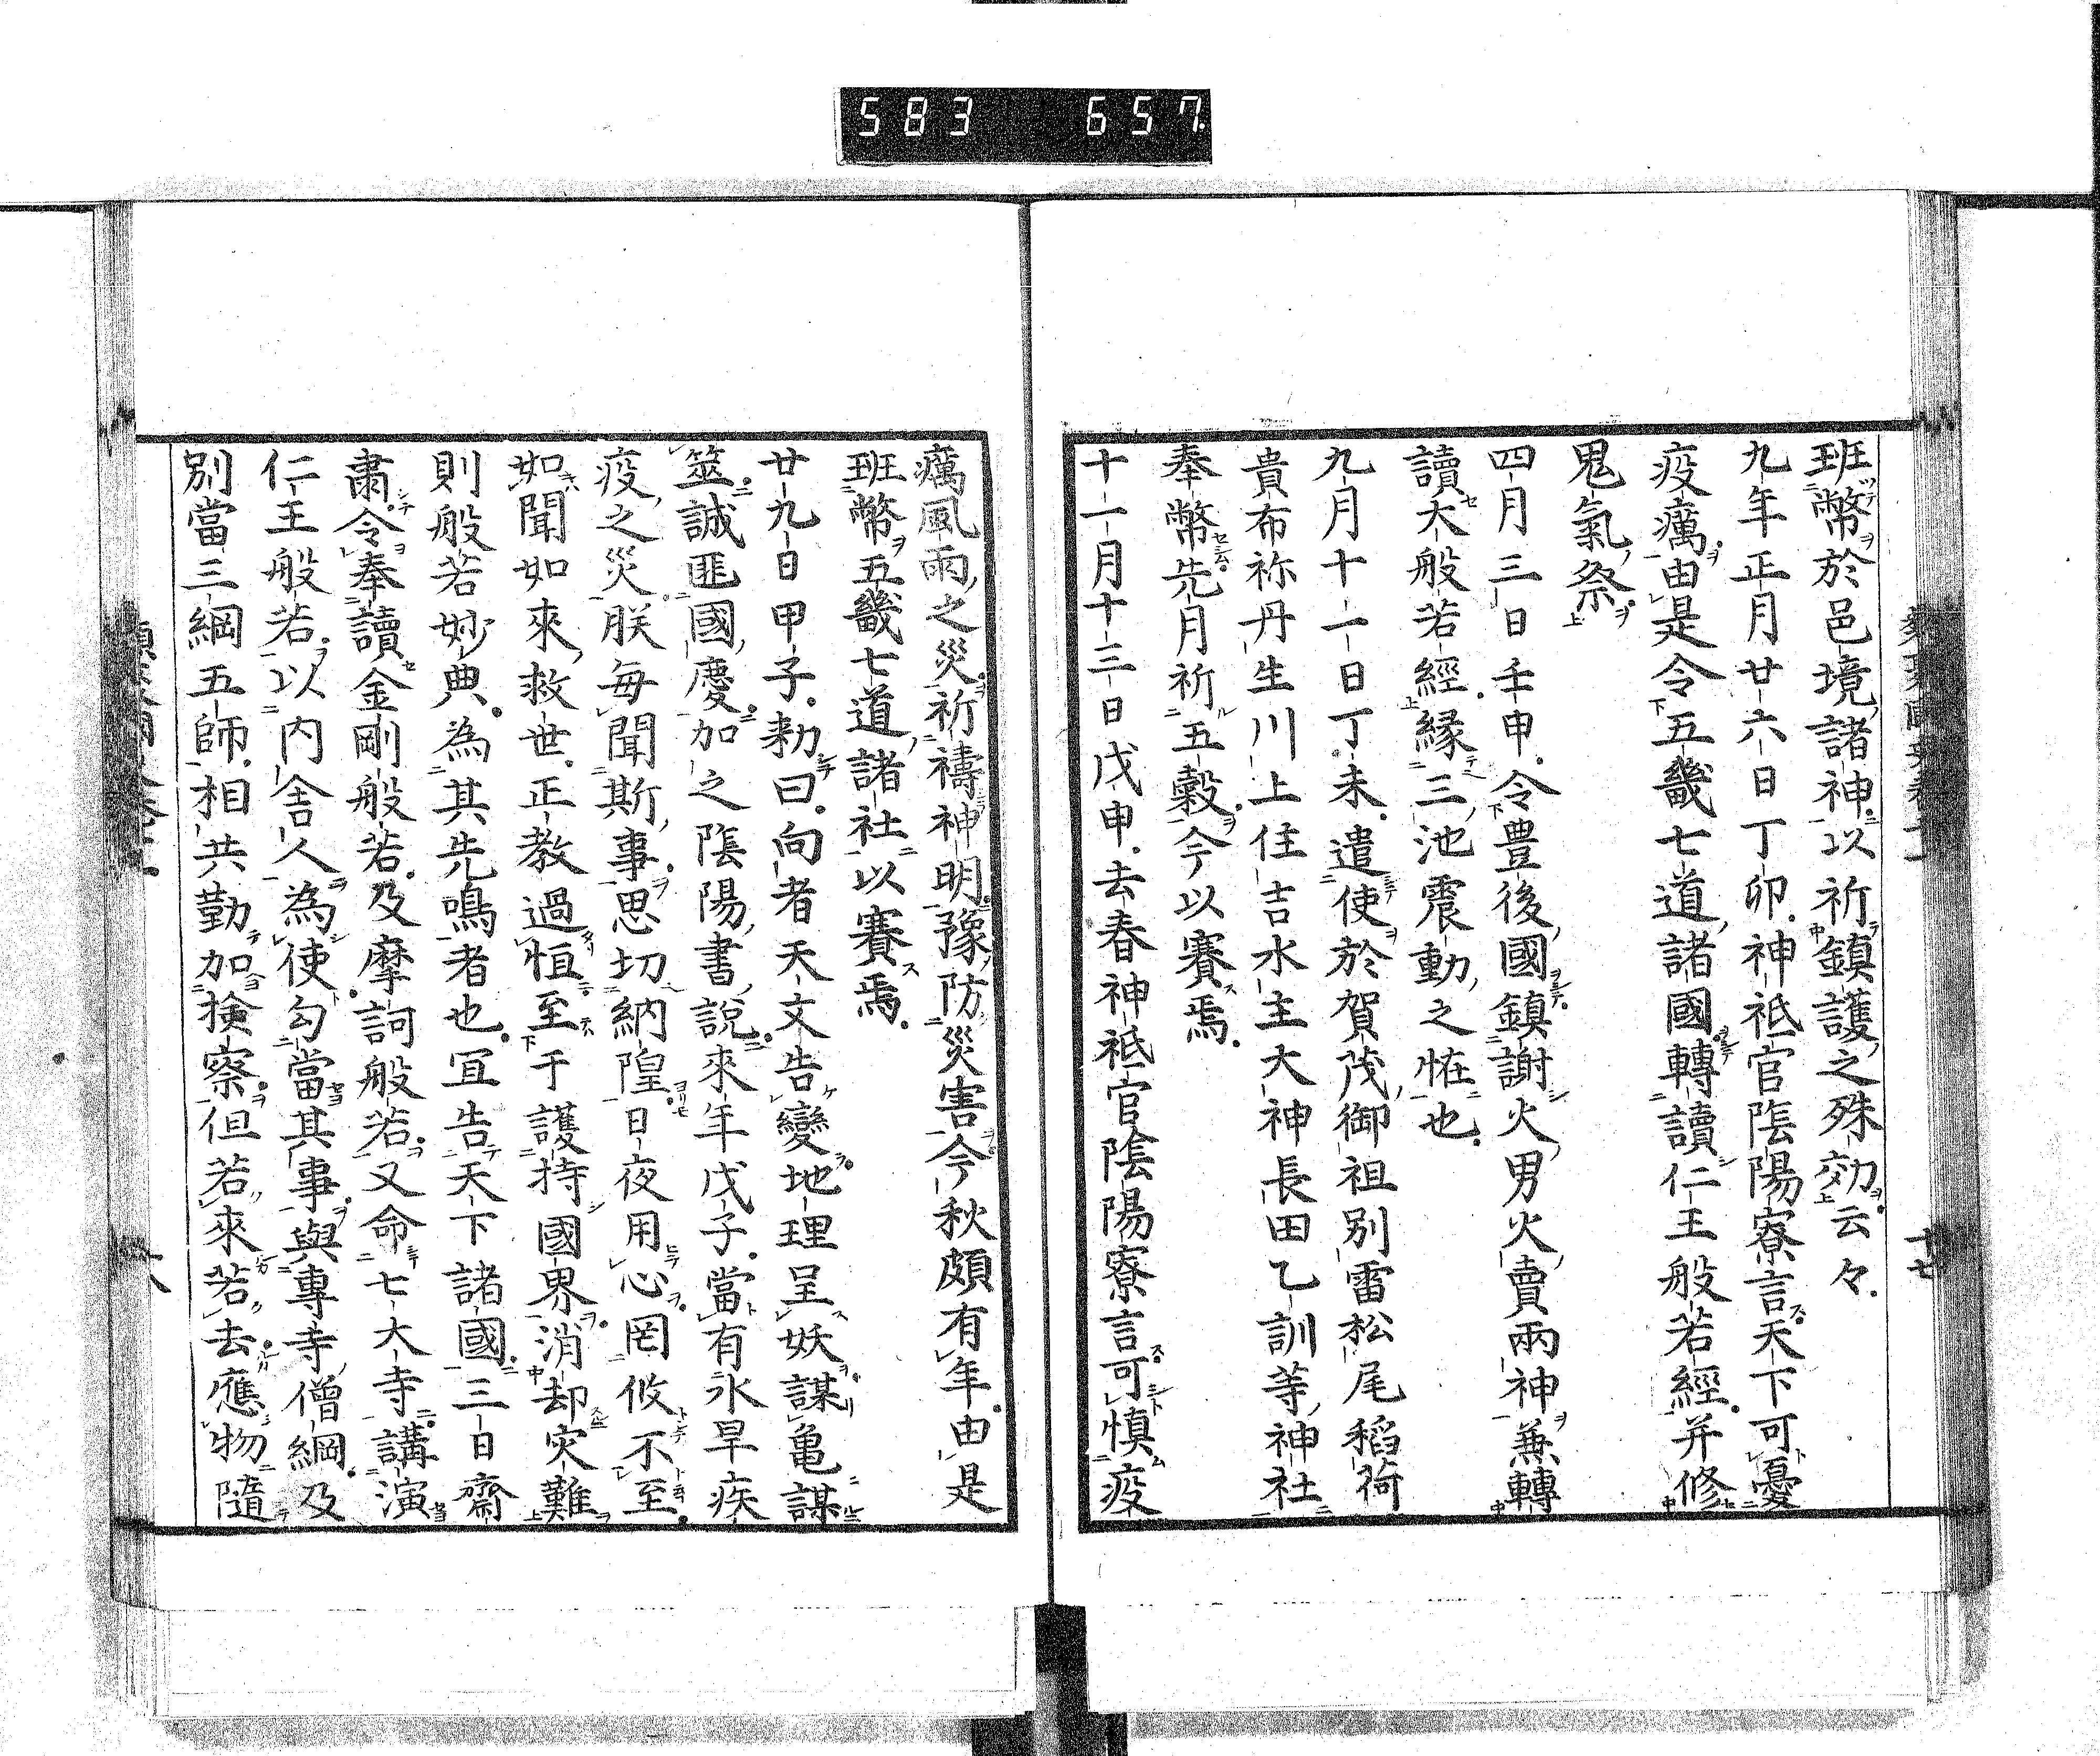 583 657
班幣於邑境諸神以祈鎮護之殊効云々
九年正月廿六日丁卯神祗官陰陽寮言天下可憂
疫癘由是令五畿七道諸國轉讀仁王般若經并修
鬼氣祭
四月三日壬申令豊後國鎮謝火男火賣兩神兼轉
讀大般若經縁三池震動之恠也
九月十一日丁未遣使於賀茂御祖別雷松尾稻荷
貴布祢丹生川上住吉水主大神長田乙訓等神社
奉幣先月祈五穀今以賽焉
十一月十三日戊申去春神祗官陰陽寮言可慎疫
癘風雨之災祈禱神明豫防災害今秋頗有年由是
班幣五畿七道諸社以賽焉
廿九日甲子勅曰向者天文告變地理呈妖謀龜謀
筮誠匪國慶加之陰陽書說來年戊子當有水旱疾
疫之災朕每聞斯事思切納隍日夜用心罔攸不至
如聞如來救世正教過恒至于護持國界消却灾難
則般若妙典為其先鳴者也冝告天下諸國三日齋
肅令奉讀金剛般若及摩訶般若又命七大寺講演
仁王般若以內舍人為使勾當其事與專寺僧綱及
別當三綱五師相共勤加撿察但若來若去應物隨
十七